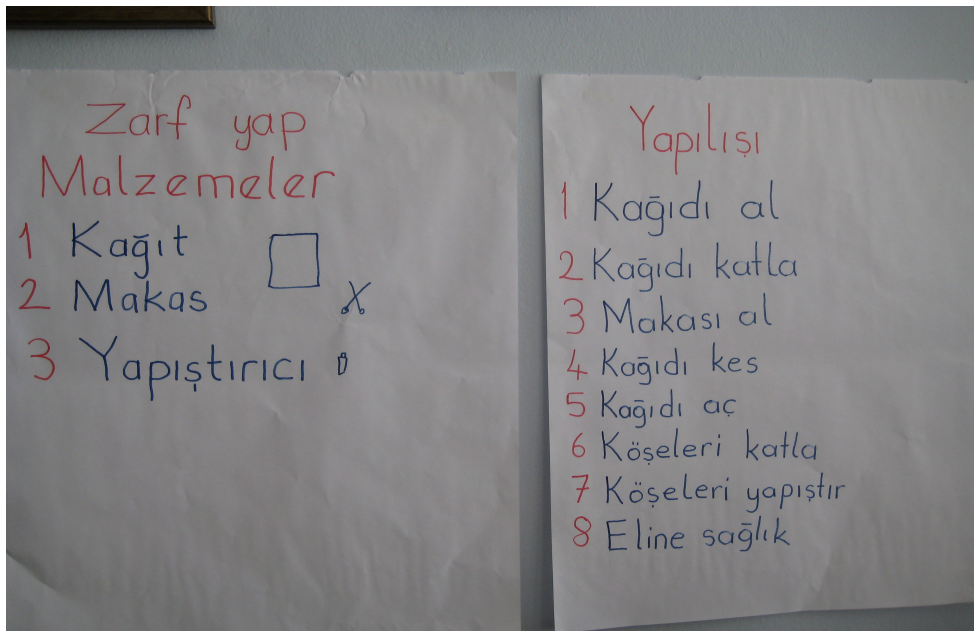 Zarf yap
Malzemeler
1 Kağıt
2 Makas
3 Yapıştırıcı
Yapılışı
1 Kağıdı al
2 Kağıdı katla
3 Makası al
4 Kağıdı kes
5 Kağıdı aç
6 Köşeleri katla
7 Köşeleri yapıştır
8 Eline sağlık